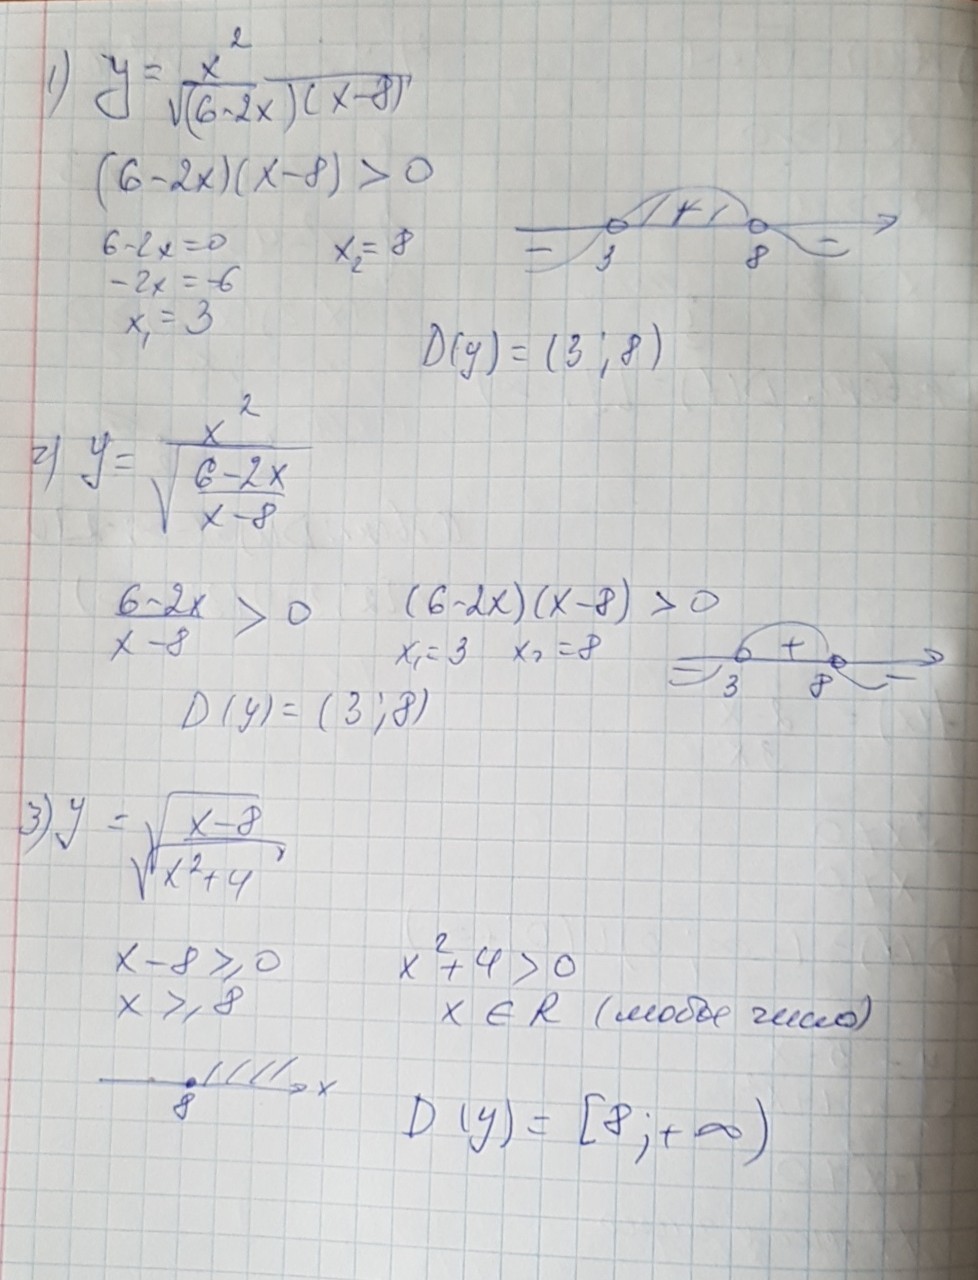 1) y = x² / √((6-2x)(x-8))
(6-2x)(x-8) > 0
6-2x=0 x₂=8
-2x=-6
x₁=3
- 3 + 8 -
D(y) = (3; 8)
2) y = x² / √((6-2x)/(x-8))
(6-2x)/(x-8) > 0 (6-2x)(x-8) > 0
x₁=3 x₂=8
- 3 + 8 -
D(y) = (3; 8)
3) y = √(x-8) / √(x²+4)
x-8 ≥ 0 x²+4 > 0
x ≥ 8 x ∈ R (любое число)
8 x
D(y) = [8; +∞)